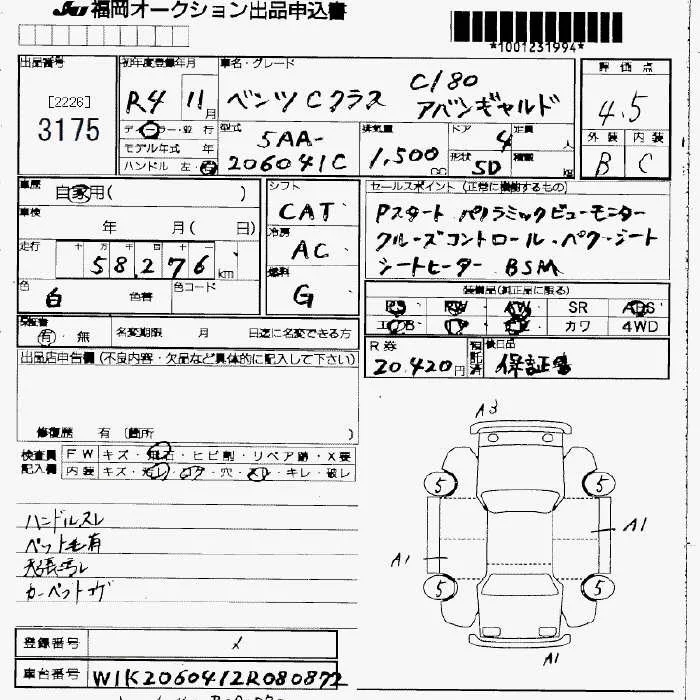 福岡オークション出品申込書
*1001231994*
出品番号
[2226]
3175
初年度登録年月
R4 11月
車名・グレード
ベンツ Cクラス C180
アバンギャルド
評価点
4.5
外装 内装
B C
ディーラー・並行
モデル年式 年
ハンドル 左・右
型式
5AA-
206041C
排気量
1,500cc
ドア
4
定員
人
形状
SD
積載
kg
車歴
自家用( )
車検
年 月( 日)
走行
十 万 千 百 十 一
58,276km
色
白
色替
色コード
シフト
CAT
冷房
AC
燃料
G
セールスポイント(正常に機能するもの)
Pスタート パノラミックビューモニター
クルーズコントロール・ベクーシート
シートヒーター BSM
装備品(純正品に限る)
PS PW AW SR ABS
カワ 4WD
保証書
有・無
名変期限 月 日迄に名変できる方
R券
20,420円
預託済
後日品
保証書
出品店申告欄(不良内容・欠品など具体的に記入して下さい)
修復歴 有 〔箇所 )
検査員
記入欄
FW キズ・飛石・ヒビ割・リペア跡・X要
内装 キズ・汚レ・コゲ・穴・スレ・キレ・破レ
ハンドルスレ
ペット毛有
天張汚レ
カーペットコゲ
A3
5
5
A1
A1
5
5
A1
登録番号
車台番号
W1K2060412R080872